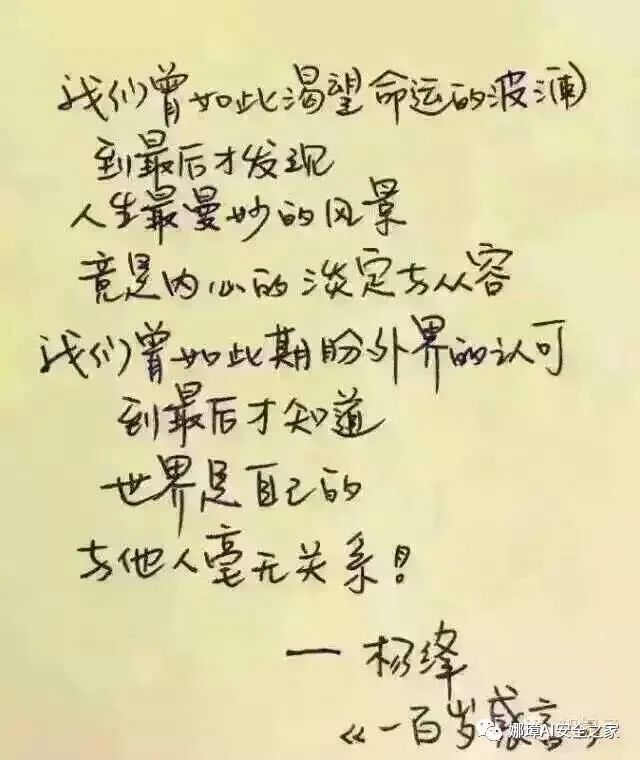 我们曾如此渴望命运的波澜
到最后才发现
人生最曼妙的风景
竟是内心的淡定与从容
我们曾如此期盼外界的认可
到最后才知道
世界是自己的
与他人毫无关系！
— 杨绛
《一百岁感言》
娜璋AI安全之家